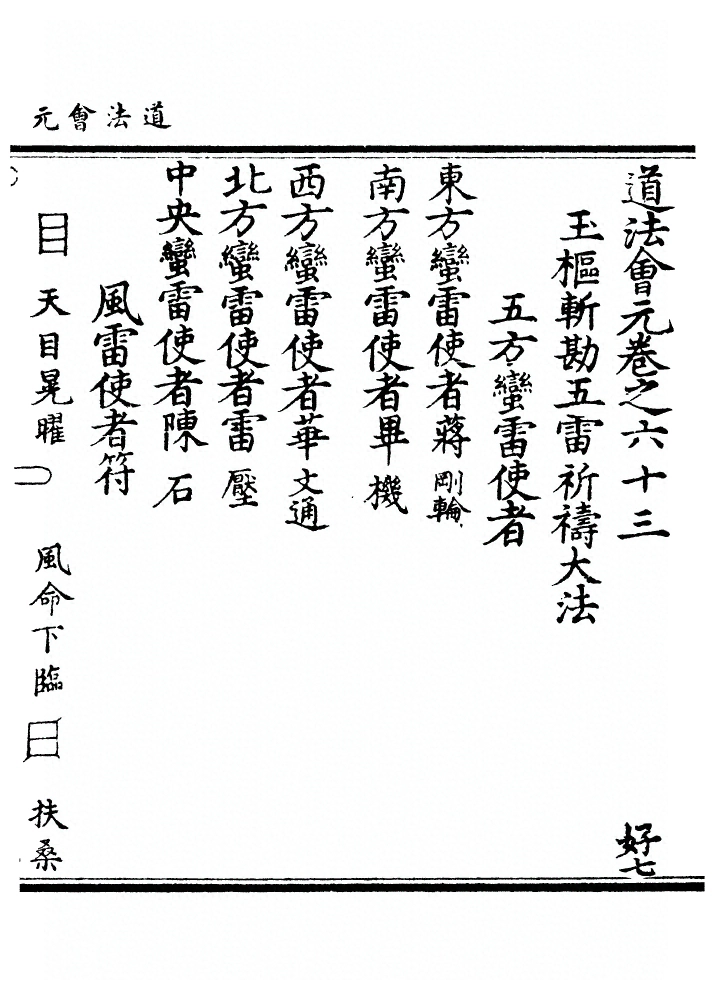 道法會元
道法會元卷之六十三
好七
玉樞斬勘五雷祈禱大法
五方蠻雷使者
東方蠻雷使者蔣剛輪
南方蠻雷使者畢機
西方蠻雷使者華文通
北方蠻雷使者雷壓
中央蠻雷使者陳石
風雷使者符
天目晃曜 風命下臨 扶桑